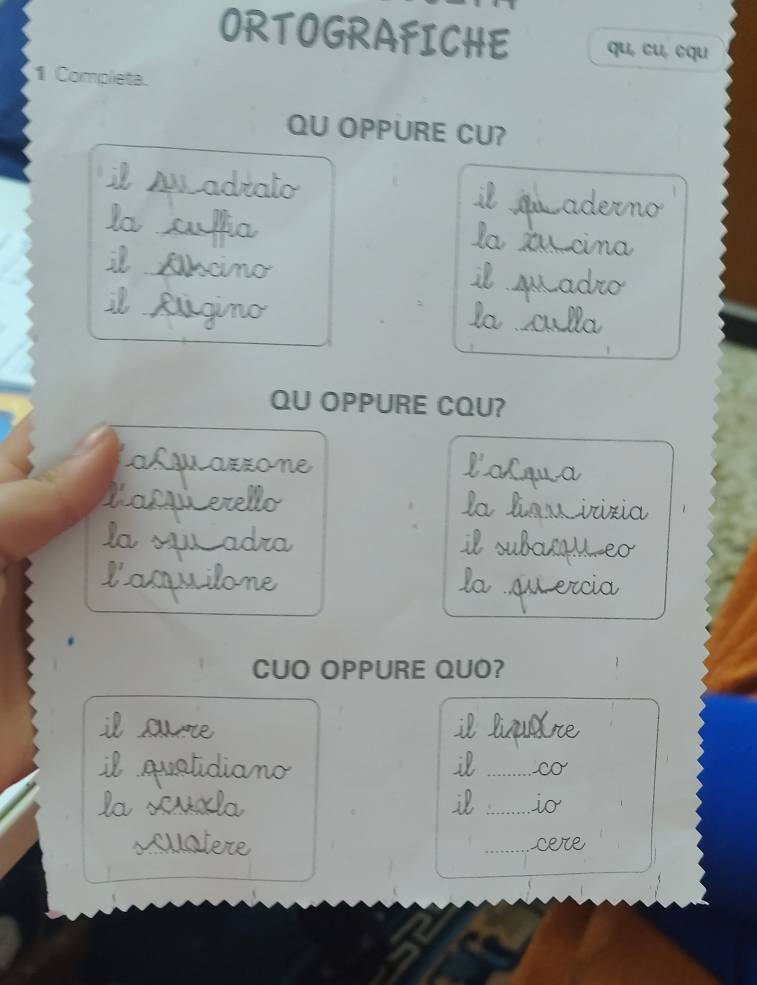 ORTOGRAFICHE
qu, cu, cqu
1 Completa.
QU OPPURE CU?
il quadrato
la cuffia
il cuscino
il cugino
il quaderno
la cucina
il quadro
la culla
QU OPPURE CQU?
l'acquazzone
l'acquerello
la squadra
l'acquilone
l'acqua
la liquirizia
il subacqueo
la quercia
CUO OPPURE QUO?
il cuore
il quotidiano
la scuola
scuotere
il liquore
il ........co
il ........io
........cere